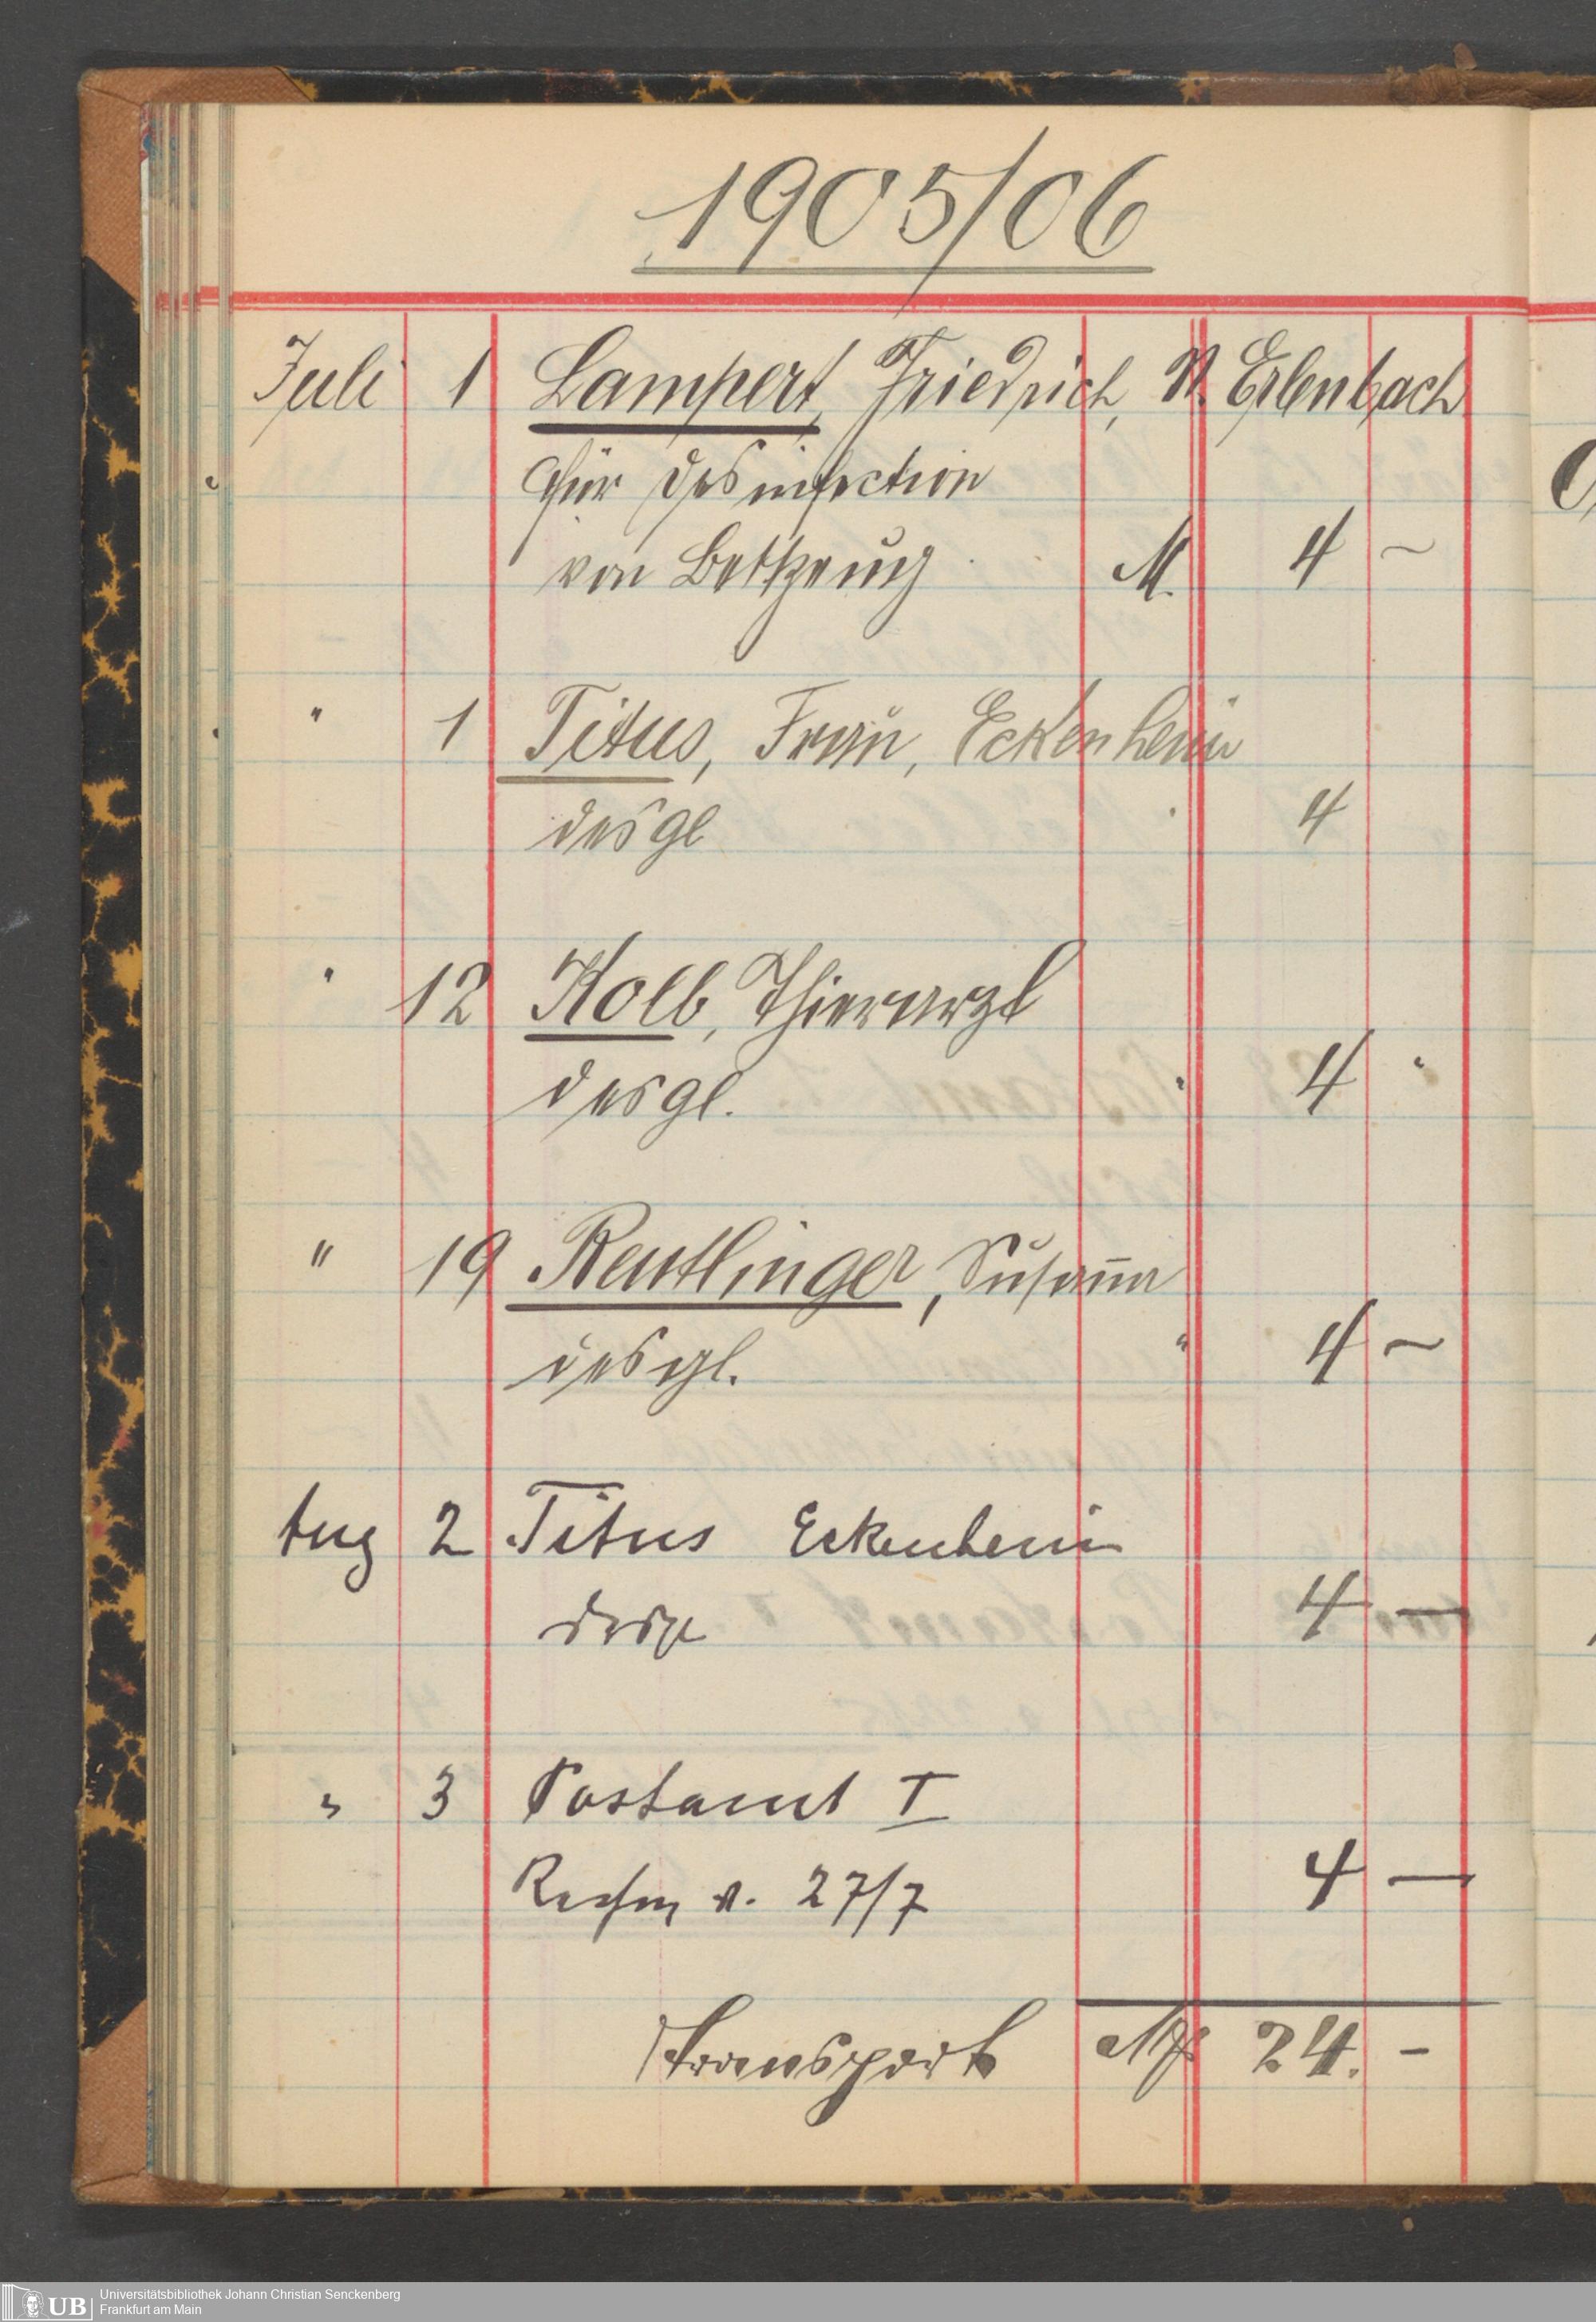 1905/06
Juli 1 Lampert, Friedrich, N. Erlenbach
für Desinfection
von Bettzeug M. 4 –
" 1 Titus, Frau, Eckenheim
desgl 4
" 12 Kolb, Thierarzt
desgl. " 4 "
" 19 Reutlinger, Susanna
desgl. " 4 –
Aug 2 Titus Eckenheim
desgl 4 —
" 3 Postamt I
Rechng v. 27/7 4 —
Transport M 24. –
UB Universitätsbibliothek Johann Christian Senckenberg
Frankfurt am Main